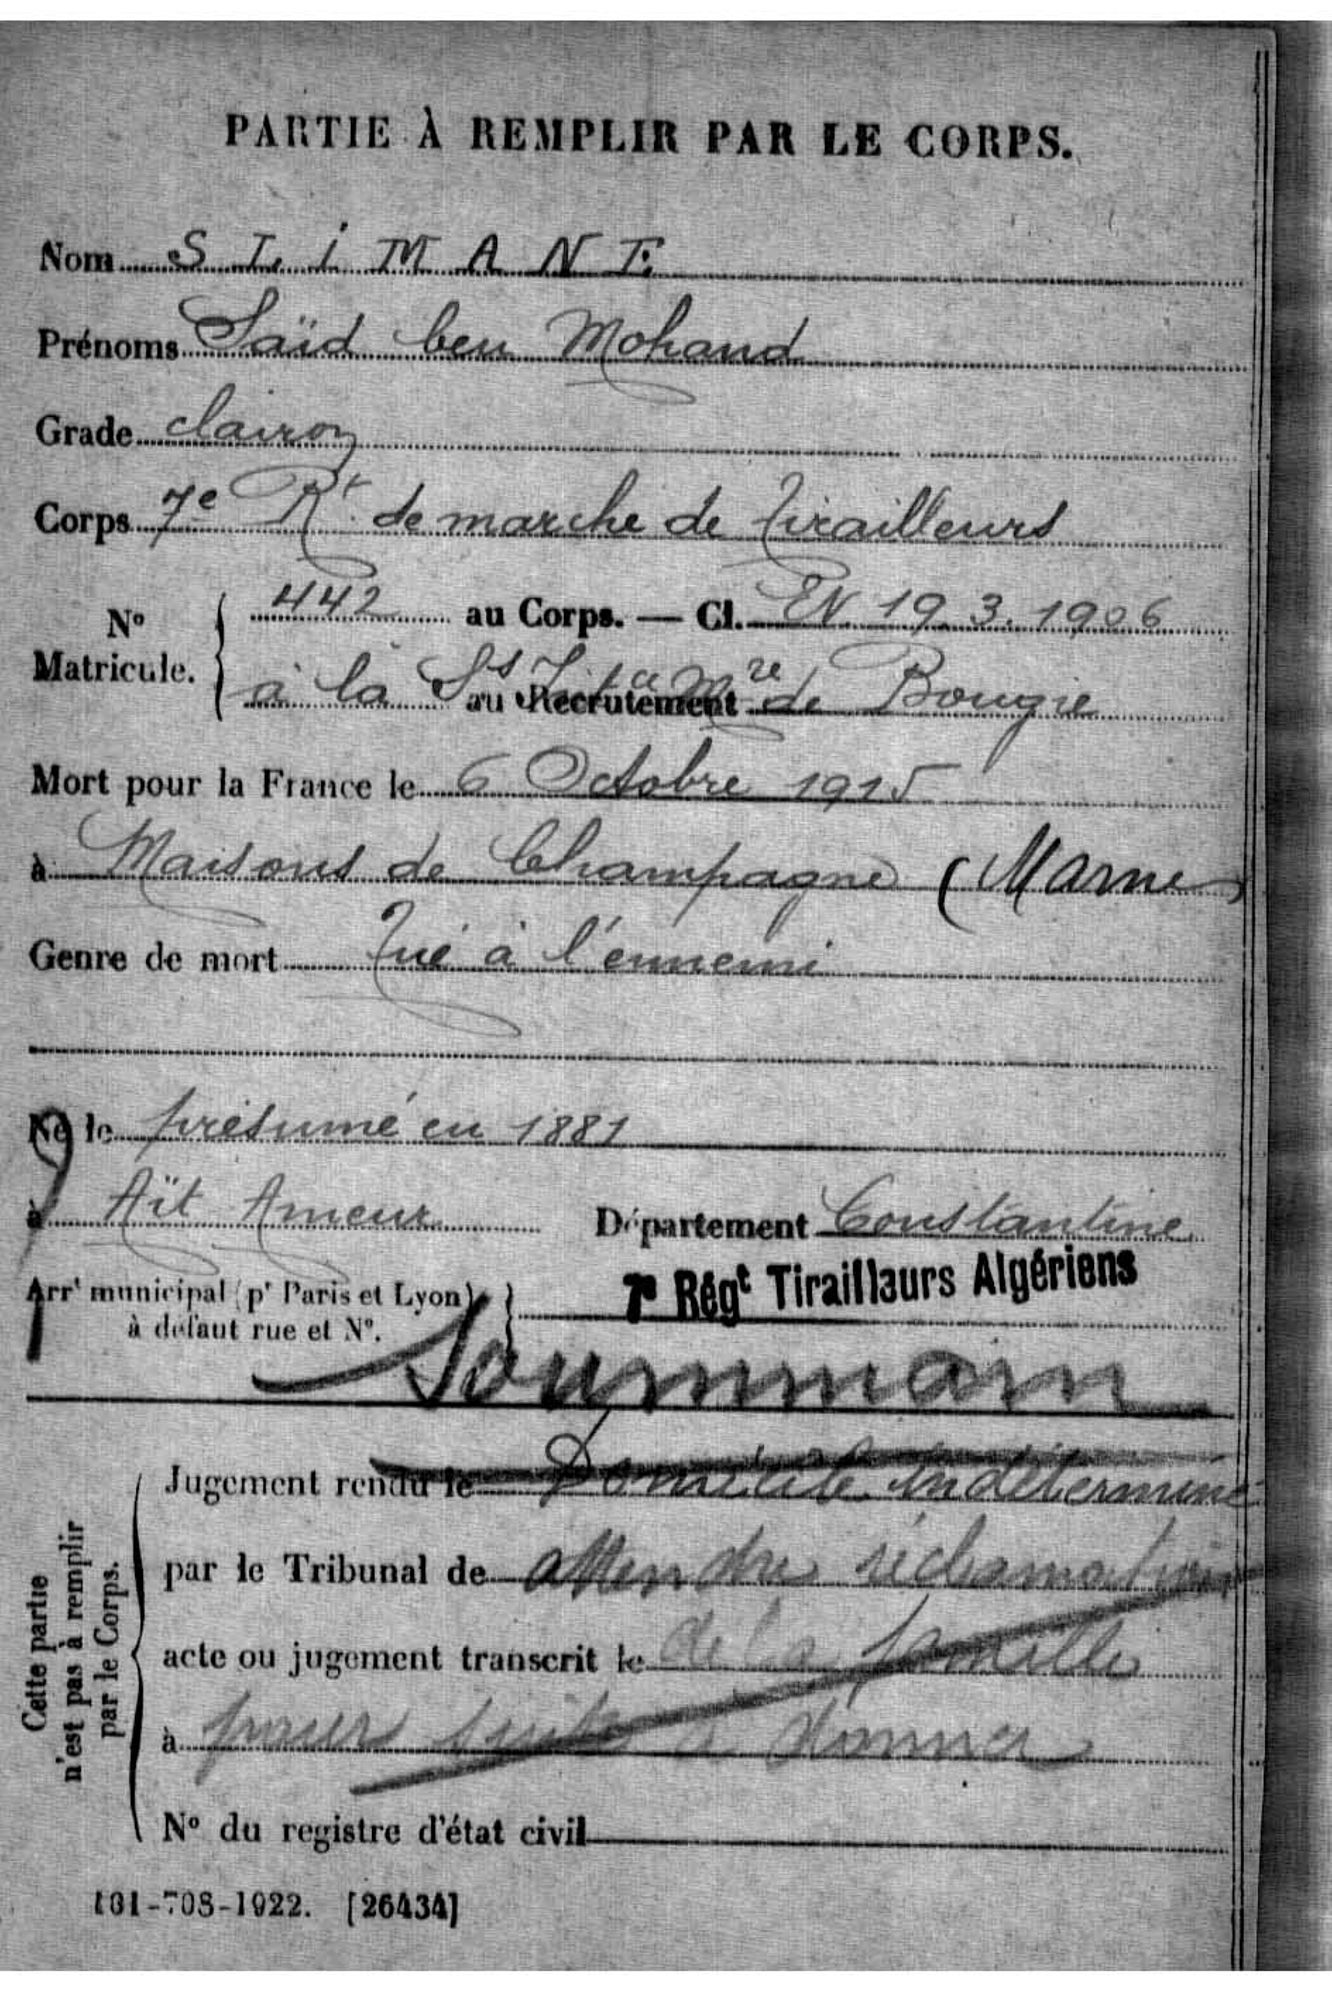 PARTIE À REMPLIR PAR LE CORPS.
Nom SLIMANE
Prénoms Saïd ben Mohand
Grade clairon
Corps 7e Rt de marche de Tirailleurs
No Matricule. 442 au Corps. — Cl. EV 19.3.1906
à la Ss Intce Mre de Bougie
au Recrutement
Mort pour la France le 6 Octobre 1915
à Maisons de Champagne (Marne)
Genre de mort Tué à l'ennemi
Né le présumé en 1881
à Aït Ameur Département Constantine
Arrt municipal (pr Paris et Lyon), à défaut rue et No.
7e Régt Tirailleurs Algériens
Soummam
Cette partie n'est pas à remplir par le Corps.
Jugement rendu le Domicile indéterminé
par le Tribunal de attendre réclamation
acte ou jugement transcrit le de la famille
à pour suite à donner
No du registre d'état civil
101-708-1922. [26434]